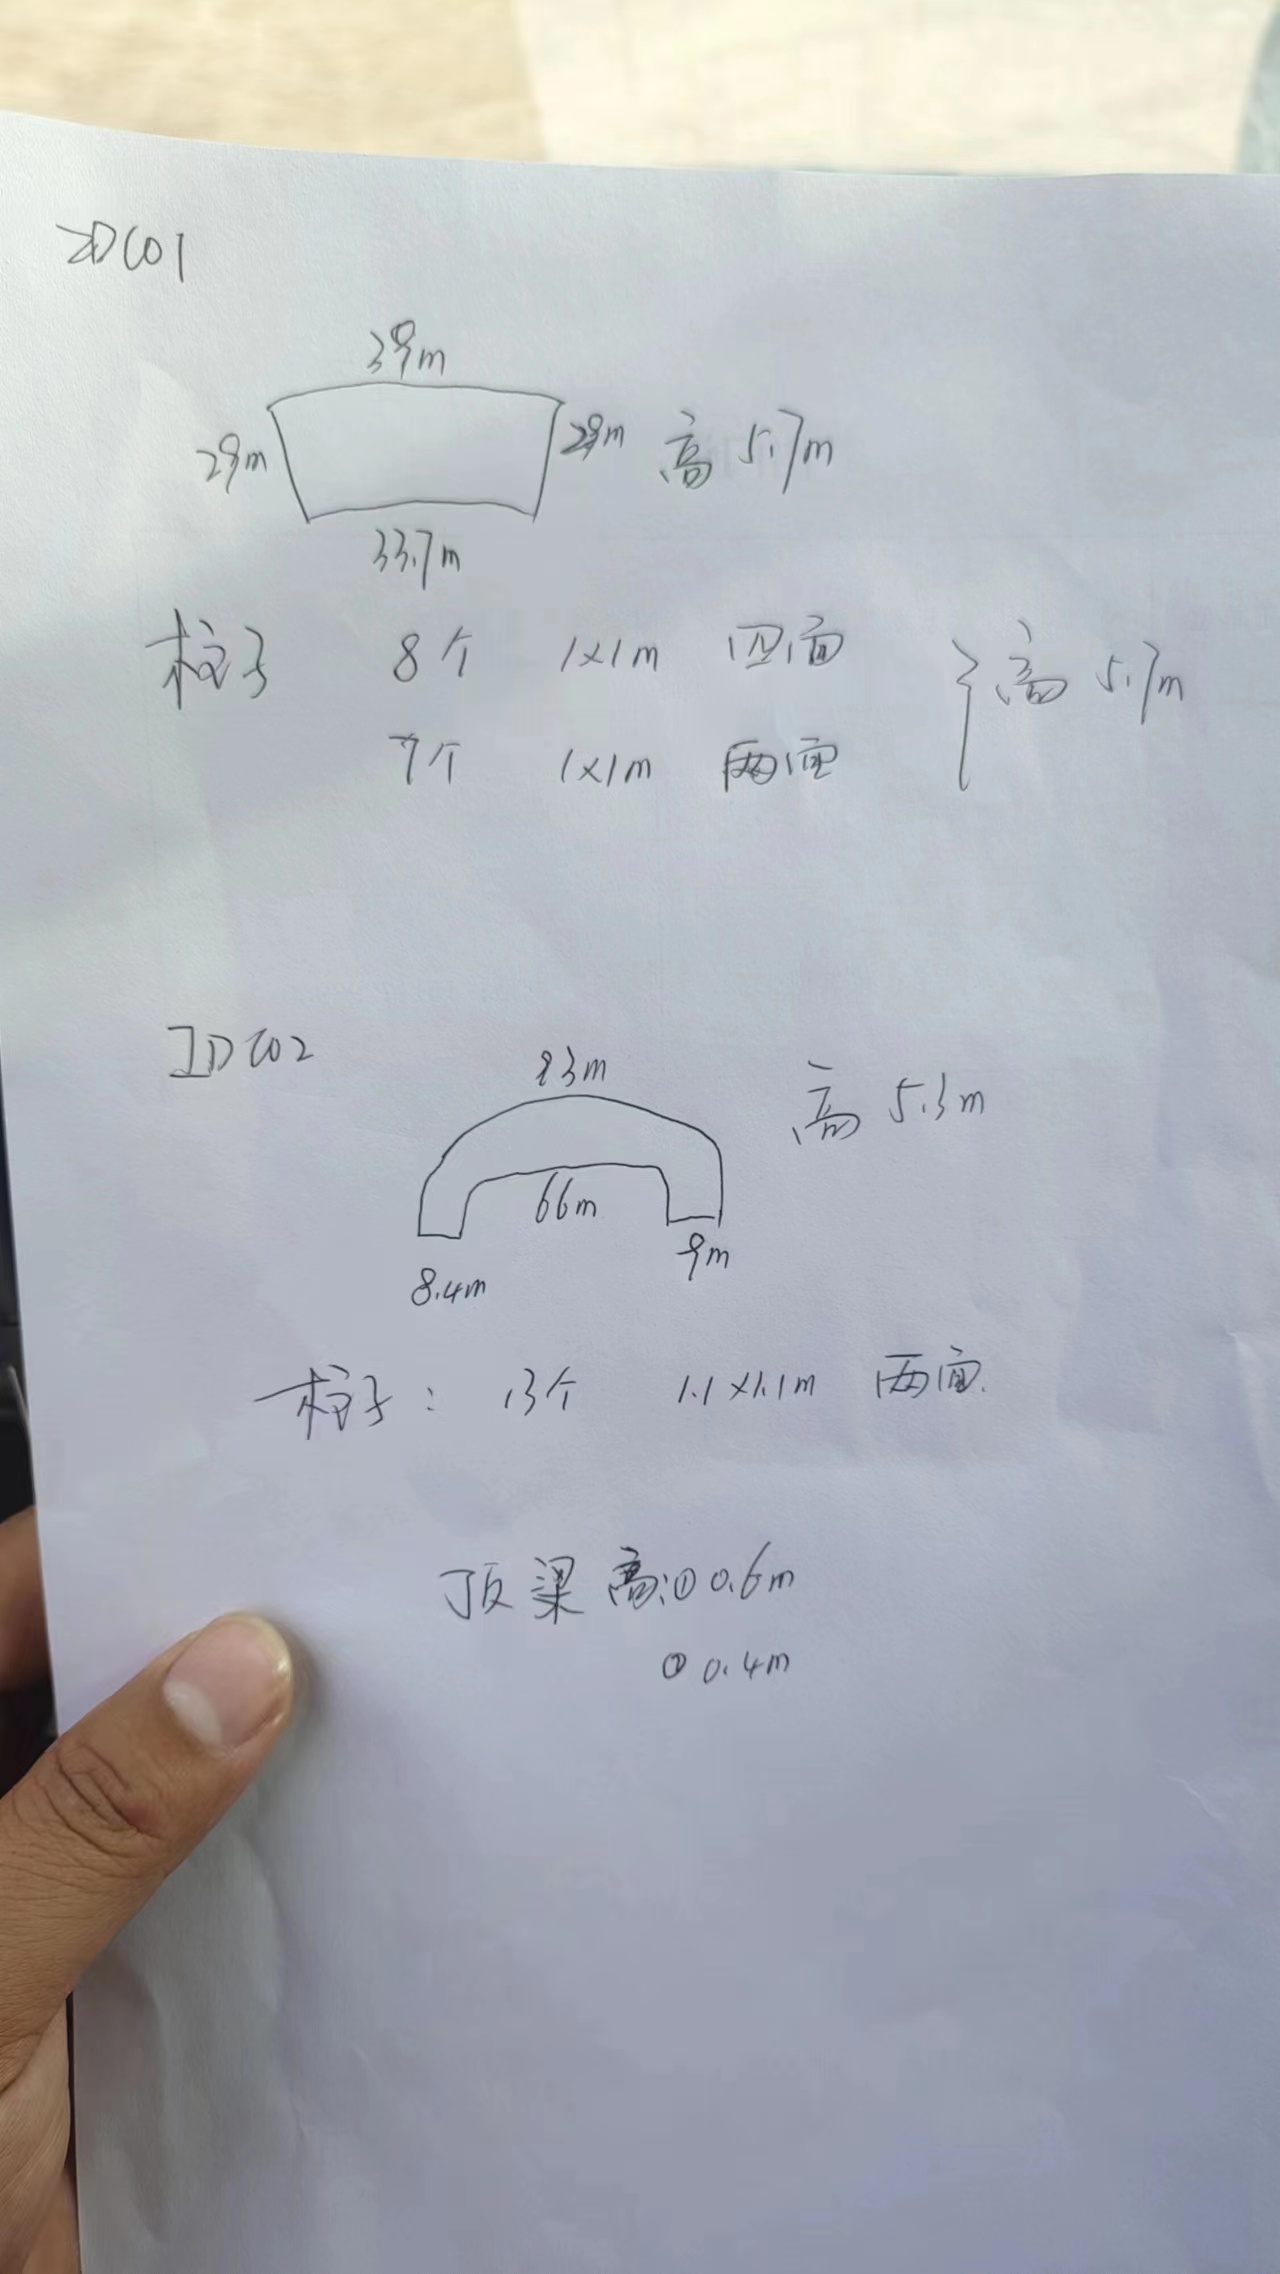 JDC01
39m
29m 29m 高 5.7m
33.7m
柱子 8个 1×1m 四面 } 高 5.7m
7个 1×1m 两面
JDC02
83m
高 5.3m
66m
9m
8.4m
柱子： 13个 1.1×1.1m 两面.
顶梁高:① 0.6m
② 0.4m